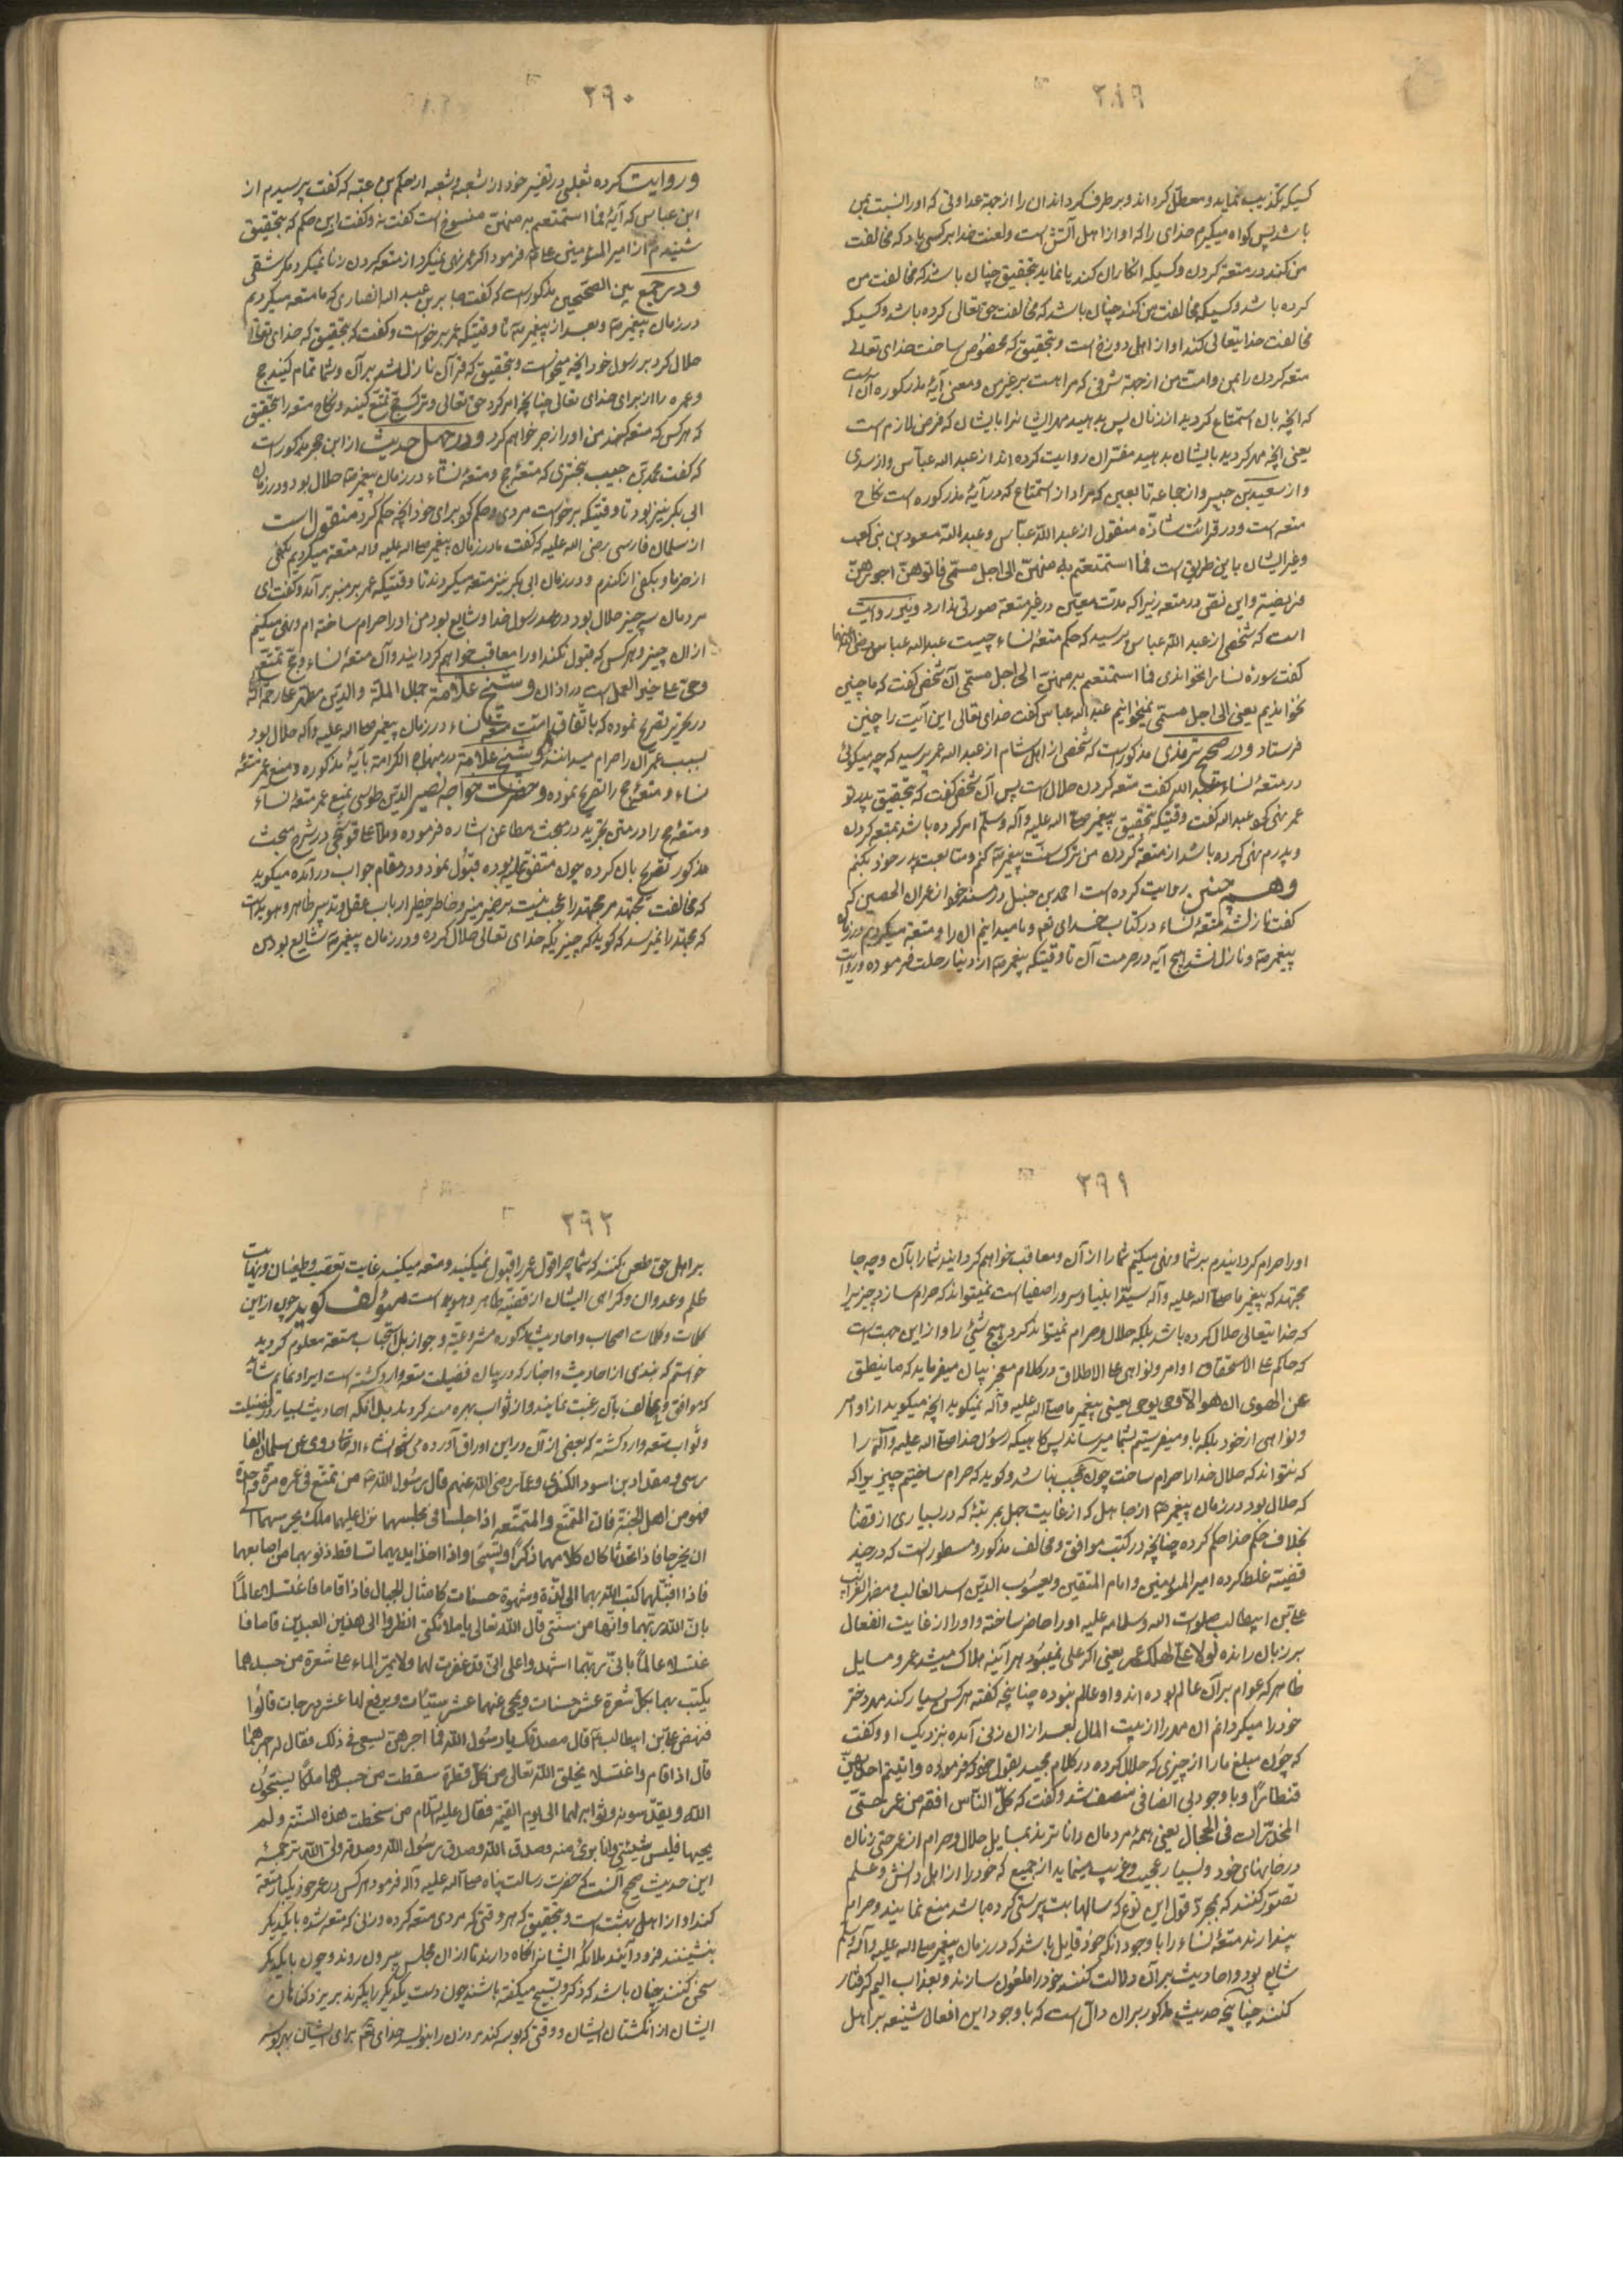 ٣٨٩
کسیکه تکذیب نماید و معطل کرداند و برطرف کرداند ان را از جهة عداوتی که اورا نسبت بمن
باشد پس کواه میکیرم خدای را که او از اهل آتش است و لعنت خدا بر کسی باد که مخالفت
من کند در متعه کردن و کسیکه انکار ان کند یا نماید بتحقیق چنان باشد که مخالفت من
کرده باشد و کسیکه مخالفت من کند چنان باشد که مخالفت حق تعالی کرده باشد و کسیکه
مخالفت خدایتعالی کند او از اهل دوزخ است و بتحقیق که مخصوص ساخت خدای تعالی
متعه کردن را بمن و امت من از جهة شرفی که مرا هست بر غیر من و معنی آیهٔ مذکوره آن است
که انچه بان استمتاع کردید از زنان پس بدهید مهر ایشانرا بایشان که فرض لازم است
یعنی انچه مهر کردید بایشان بدهید مفسّران روایت کرده اند از عبد الله عباس و از سدی
و از سعید بن جبیر و از جماعه تابعین که مراد از استمتاع که در آیهٔ مذکوره است نکاح
متعه است و در قرائت شاذّه منقول از عبد الله عبّاس و عبد الله مسعود بن بنی کعب
و غیر ایشان باین طریق است فما استمتعتم به منهنّ الی اجل مسمّی فاتوهنّ اجورهنّ
فریضة و این نصّ در متعه زیرا که مدت معیّن در غیر متعه صورتی ندارد و نیز روایت
است که شخصی از عبد الله عباس پرسید که حکم متعهٔ نساء چیست عبد الله عباس رضی الله عنهما
کفت سورهٔ نسا را نخواندی فما استمتعتم به منهنّ الی اجل مسمّی آن شخص کفت که ما چنین
نخواندیم یعنی الی اجل مسمّی نمیخوانیم عبد الله عباس کفت خدای تعالی این آیت را چنین
فرستاد و در صحیح ترمذی مذکور است که شخصی از اهل شام از عبد الله عمر پرسید که چه میکوئی
در متعهٔ نساء عبد الله کفت متعه کردن حلال است پس آن شخص کفت که بتحقیق پدر تو
عمر نهی کرد عبد الله کفت وقتیکه بتحقیق پیغمبر صلی الله علیه و آله و سلم امر کرده باشد بمتعه کردن
و پدرم نهی کرده باشد از متعه کردن من ترک سنّت پیغمبر ص کنم و متابعت پدر خود بکنم
و هم چنین روایت کرده است احمد بن حنبل در مسند خود از عمران الحصین که
کفت نازل شد متعهٔ نساء در کتاب خدای تعم و ما میدانیم ان را و متعه میکردیم در زمان
پیغمبر ص و نازل نشد هیچ آیه در حرمت آن تا وقتیکه پیغمبر ص از دنیا رحلت فرموده و روایت
٣٩٠
و روایت کرده ثعلبی در تفسیر خود از شعبه و شعبه از حکم بن عتبه که کفت پرسیدم از
ابن عباس که آیهٔ فما استمتعتم به منهنّ منسوخ است کفت نه و کفت این حکم که بتحقیق
شنیدم از امیر المؤمنین علی ع فرمود اکر عمر نهی نمیکرد از متعه کردن زنا نمیکرد مکر شقی
و در جمع بین الصحیحین مذکور است که کفت جابر بن عبد الله انصاری که ما متعه میکردیم
در زمان پیغمبر ص و بعد از پیغمبر ص تا وقتیکه عمر برخواست و کفت که بتحقیق که خدای تعالی
حلال کرد بر رسول خود انچه میخواست و بتحقیق که قرآن نازل شد بر آن و شما تمام کنید حج
و عمره را از برای خدای تعالی چنانچه امر کرد حق تعالی و ترک حج تمتّع کنید و نکاح متعه را بتحقیق
که هر کس که متعه کند من اورا زجر خواهم کرد و در چهل حدیث از ابن حجر مذکور است
که کفت محمد بن حبیب بختری که متعهٔ حج و متعهٔ نساء در زمان پیغمبر ص حلال بود و در زمان
ابی بکر نیز بود تا وقتیکه برخواست مردی و حکم کرد برای خود انچه حکم کرد منقول است
از سلمان فارسی رضی الله علیه که کفت ما در زمان پیغمبر صلی الله علیه و اله متعه میکردیم بکفی
از خرما و بکفی از کندم و در زمان ابی بکر نیز متعه میکردند تا وقتیکه عمر بر منبر بر آمد و کفت ای
مردمان سه چیز حلال بود در عهد رسول خدا و شایع بود من اورا حرام ساخته ام و نهی میکنم
از ان چیز و هر کس که قبول نکند اورا معاقب خواهم کردانید و آن متعهٔ نساء و حج تمتّع
و حی علی خیر العمل است در اذان و شیخ علامة جمال الملّة و الدین مطهّر علیه رحمة الله
در تحریر تصریح نموده که باتّفاق امّت متعه نساء در زمان پیغمبر صلی الله علیه و آله حلال بود
بسبب عمر آن را حرام میدانند و شیخ علامة در منهاج الکرامة بآیهٔ مذکوره و منع عمر متعهٔ
نساء و متعهٔ حج را تصریح نموده و حضرت خواجه نصیر الدین طوسی بمنع عمر متعهٔ نساء
و متعهٔ حج را در متن تجرید در مبحث مطاعن اشاره فرموده و ملا علی قوشجی در شرح مبحث
مذکور تصریح بان کرده چون متفق علیه بوده قبول نمود و در مقام جواب در آمده میکوید
که مخالفت مجتهد مر مجتهد را عجب نیست بر ضمیر منیر و خاطر خطیر ارباب عقل و تدبیر ظاهر و هویداست
که مجتهد را نمیرسد که کوید که چیزیکه خدای تعالی حلال کرده و در زمان پیغمبر ص شایع بود من
٣٩١
اورا حرام کردانیدم بر شما و نهی میکنم شما را از آن و معاقب خواهم کردانید شما را بآن و چه جا
مجتهد که پیغمبر ما صلی الله علیه و آله سیّد انبیا و سرور اصفیا است نمیتواند که حرام سازد چیزیرا
که خدایتعالی حلال کرده باشد بلکه حلال و حرام نمیتواند کردن هیچ شیٔ را و از این جهت است
که حاکم علی الاستحقاق اوامر و نواهی علی الاطلاق در کلام معجز بیان میفرماید که ما ینطق
عن الهوی ان هو الا وحی یوحی یعنی پیغمبر ما صلی الله علیه و آله نمیکوید انچه میکوید از اوامر
و نواهی از خود بلکه باو میفرستیم بشما میرساند پس کاهیکه رسول خدا صلی الله علیه و آله را
که نتواند که حلال خدا را حرام ساخت چون عجب نباشد و کوید که حرام ساختم چیزیرا که
که حلال بود در زمان پیغمبر ص از جاهل که از غایت جهل بمرتبهٔ که در بسیاری از قضا
بخلاف حکم خدا حکم کرده چنانچه در کتب موافق و مخالف مذکور و مسطور است که در چند
قضیه غلط کرده امیر المؤمنین و امام المتقین و یعسوب الدین اسد الله الغالب و مظهر الغرایب
علی بن ابیطالب صلوات الله و سلامه علیه اورا حاضر ساخته و اورا از غایت انفعال
بر زبان رانده لولا علی لهلک عمر یعنی اکر علی نمیبود هر آینه هلاک میشد عمر و مسایل
ظاهر که عوام بر آن عالم بوده اند و او عالم نبوده چنانچه کفته هر کس بسیار کند مهر دختر
خود را میکردانم ان مهر را از بیت المال بعد از ان زنی آمده بنزدیک او و کفت
که چون مبلغ ما را از چیزی که حلال کرده در کلام مجید بقول خود که فرموده و اتیتم احدیهنّ
قنطاراً و با وجود بی انصافی منصف شد و کفت که کلّ الناس افقه من عمر حتّی
المخدّرات فی الحجال یعنی همهٔ مردمان داناترند بمسایل حلال و حرام از عمر حتی زنان
در خانهای خود و بسیار عجیب و غریب مینماید از جمیع که خود را از اهل دانش و علم
تصوّر کنند که بمجرّد قول این نوع که سالها بت پرستی کرده باشد منع نمایند و حرام
پندارند متعهٔ نساء را با وجود انکه خود قایل باشد که در زمان پیغمبر صلی الله علیه و آله و سلم
شایع بود و احادیث بر آن دلالت کنند خود را مطعون سازند و بعذاب الیم کرفتار
کنند چنانچه حدیث مذکور بر ان دالّ است که با وجود این افعال شنیعه بر اهل
٣٩٢
بر اهل حق طعن بکنند که شما چرا قول عمر را قبول نمیکنید و متعه میکنید غایت تعصّب و طغیان و نهایت
ظلم و عدوان و کمراهی ایشان از قضیّه ظاهر و هویداست مؤلف کوید چون از این
کلمات و کلمات اصحاب و احادیث مذکوره مشروعیّت و جواز بل استحباب متعه معلوم کردید
خواستم که بندی از احادیث و اخبار که در بیان فضیلت متعه وارد کشته است ایراد نمایم
که موافق و مخالف بآن رغبت نمایند و از ثواب بهره مند کردند بدانکه احادیث بسیار در فضیلت
و ثواب متعه وارد کشته که بعضی از آن در این اوراق آورده می شود انشاء الله تعالی روی عن سلمان الفا
رسی و مقداد بن اسود الکندی و عمار رضی الله عنهم قال رسول الله ص من تمتّع فی عمره مرّة واحدة
فهو من اهل الجنّة فان المتمتّع و المتمتّعه اذا جلسا فی مجلسهما نزل علیهما ملک یحرسهما الی
ان یخرجا فاذا تحدّثا کان کلامهما ذکراً و تسبیحاً و اذا اخذ ایدیهما تساقط ذنوبهما من اصابعهما
فاذا قبّلهما کتب الله بهما الی لذّة و شهوة حسنات کامثال الجبال فاذا قاما فاغتسلا عالماً
بانّ الله ربّهما و انّها من سنّتی قال الله تعالی یا ملائکتی انظروا الی هذین العبدین قاما فا
غتسلا عالماً بانّی ربّهما اشهدوا علی انّی قد غفرت لهما و لا یمرّ الماء علی شعرة من جسدهما
یکتب بهما بکلّ شعرة عشر حسنات و یمحی عنهما عشر سیّئات و یرفع لهما عشر درجات قالوا
فنهض علی بن ابیطالب ع قال مصدّقک یا رسول الله فما اجر من یسعی فی ذلک فقال له اجرهما
قال اذا قام و اغتسلا یخلق الله تعالی من کلّ قطرة سقطت من جسدهما ملکاً یسبّحون
الله و یقدّسونه و ثوابه لهما الی یوم القیمة فقال علیه السّلام من سخطت هذه السنّة و لم
یحیها فلیس شیعتی و انا بریٔ منه و صدق الله و صدق رسول الله و صدق ولی الله ترجمهٔ
این حدیث صحیح آنست که حضرت رسالت پناه صلی الله علیه و آله فرمود هر کس در عمر خود یکبار متعه
کند او از اهل بهشت است و بتحقیق که هر وقتی که مردی متعه کرده و زنی که متعه شده با یکدیکر
بنشینند فرود آیند ملائکه ایشانرا نکاه دارند تا از ان مجلس بیرون روند و چون با یکدیکر
سخن کنند چنان باشد که ذکر و تسبیح میکفته باشند و چون دست یکدیکر را بکیرند بریزد کناهان
ایشان از انکشتان ایشان و وقتی که بوسه کند مرد زن را بنویسد خدای تعم برای ایشان بهر بوسه